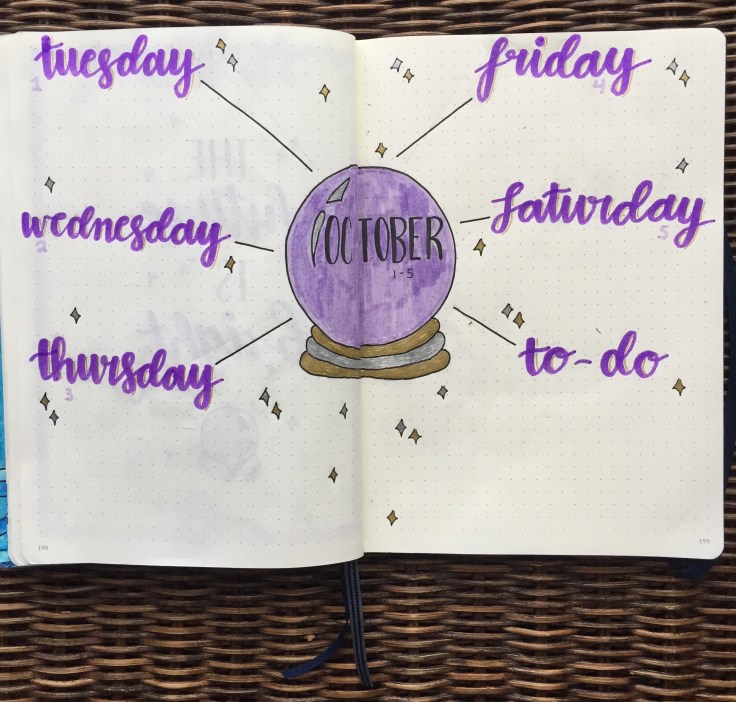 tuesday
1
wednesday
2
thursday
3
OCTOBER
1-5
friday
4
saturday
5
to-do
198
199